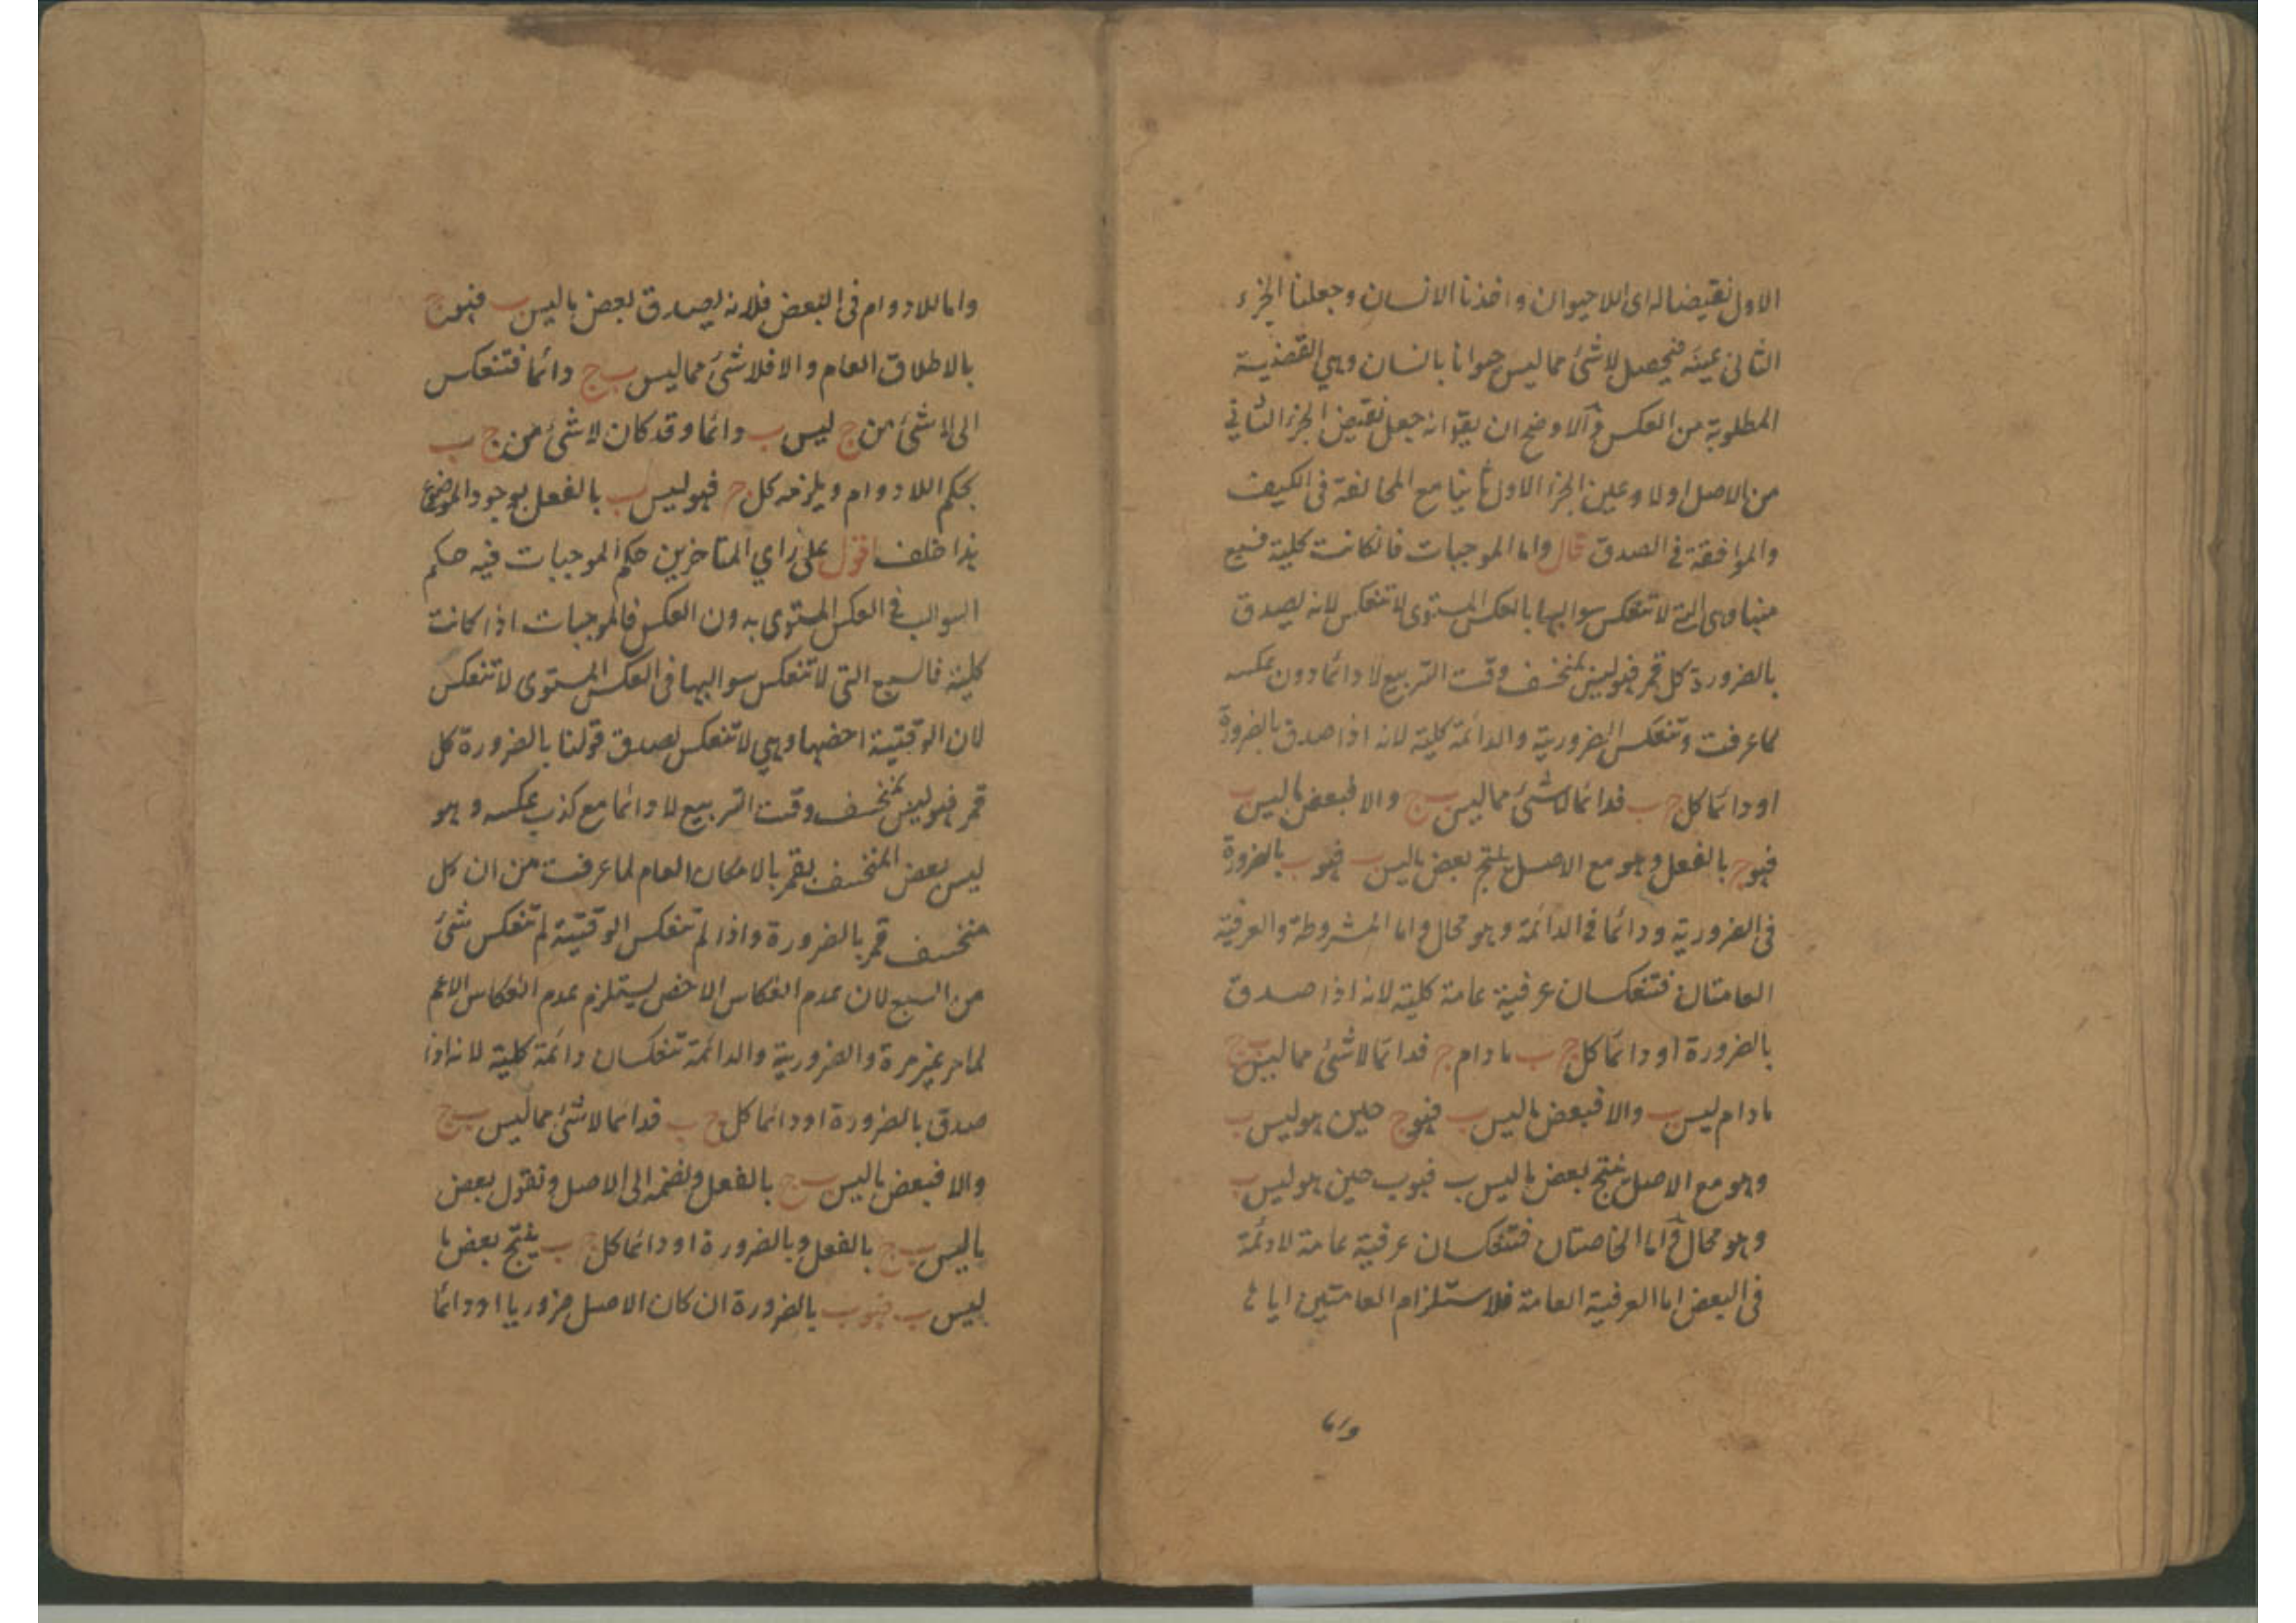 الاول نقيضا له اى اللاحيوان واخذنا الانسان وجعلنا الجزء
الثانى عينه فيحصل لاشئ مما ليس حيوانا بانسان وهى القضية
المطلوبة من العكس والاوضح ان يقو انه جعل نقيض الجزء الثاني
من الاصل اولا وعين الجزء الاول ثانيا مع المخالفة فى الكيف
والموافقة فى الصدق قال واما الموجبات فان كانت كلية فسبع
منها وهى التى لا تنعكس سوالبها بالعكس المستوى لا تنعكس لانه يصدق
بالضرورة كل قمر فهو ليس بمنخسف وقت التربيع لا دائما دون عكسه
لما عرفت وتنعكس الضرورية والدائمة كلية لانه اذا صدق بالضرورة
او دائما كل ج ب فدائما لاشئ مما ليس ب ج والا فبعض ما ليس ب
فهو ج بالفعل وهو مع الاصل ينتج بعض ما ليس ب فهو ب بالضرورة
فى الضرورية ودائما فى الدائمة وهو محال واما المشروطة والعرفية
العامتان فتنعكسان عرفية عامة كلية لانه اذا صدق
بالضرورة او دائما كل ج ب ما دام ج فدائما لاشئ مما ليس ب ج
ما دام ليس ب والا فبعض ما ليس ب فهو ج حين هو ليس ب
وهو مع الاصل ينتج بعض ما ليس ب فهو ب حين هو ليس ب
وهو محال واما الخاصتان فتنعكسان عرفية عامة لادائمة
فى البعض اما العرفية العامة فلاستلزام العامتين اياها
واما
واما اللادوام فى البعض فلانه يصدق بعض ما ليس ب فهو ج
بالاطلاق العام والا فلاشئ مما ليس ب ج دائما فتنعكس
الى لاشئ من ج ليس ب دائما وقد كان لاشئ من ج ب
بحكم اللادوام ويلزمه كل ج فهو ليس ب بالفعل لوجود الموضوع
هذا خلف اقول على راي المتاخرين حكم الموجبات فيه حكم
السوالب فى العكس المستوى بدون العكس فالموجبات اذا كانت
كلية فالسبع التى لا تنعكس سوالبها فى العكس المستوى لا تنعكس
لان الوقتية اخصها وهي لا تنعكس لصدق قولنا بالضرورة كل
قمر فهو ليس بمنخسف وقت التربيع لا دائما مع كذب عكسه وهو
ليس بعض المنخسف بقمر بالامكان العام لما عرفت من ان كل
منخسف قمر بالضرورة واذا لم تنعكس الوقتية لم تنعكس شئ
من السبع لان عدم انعكاس الاخص يستلزم عدم انعكاس الاعم
لما مر غير مرة والضرورية والدائمة تنعكسان دائمة كلية لانه اذا
صدق بالضرورة او دائما كل ج ب فدائما لاشئ مما ليس ب ج
والا فبعض ما ليس ب ج بالفعل ونضمه الى الاصل ونقول بعض
ما ليس ب ج بالفعل وبالضرورة او دائما كل ج ب ينتج بعض ما
ليس ب فهو ب بالضرورة ان كان الاصل ضروريا او دائما